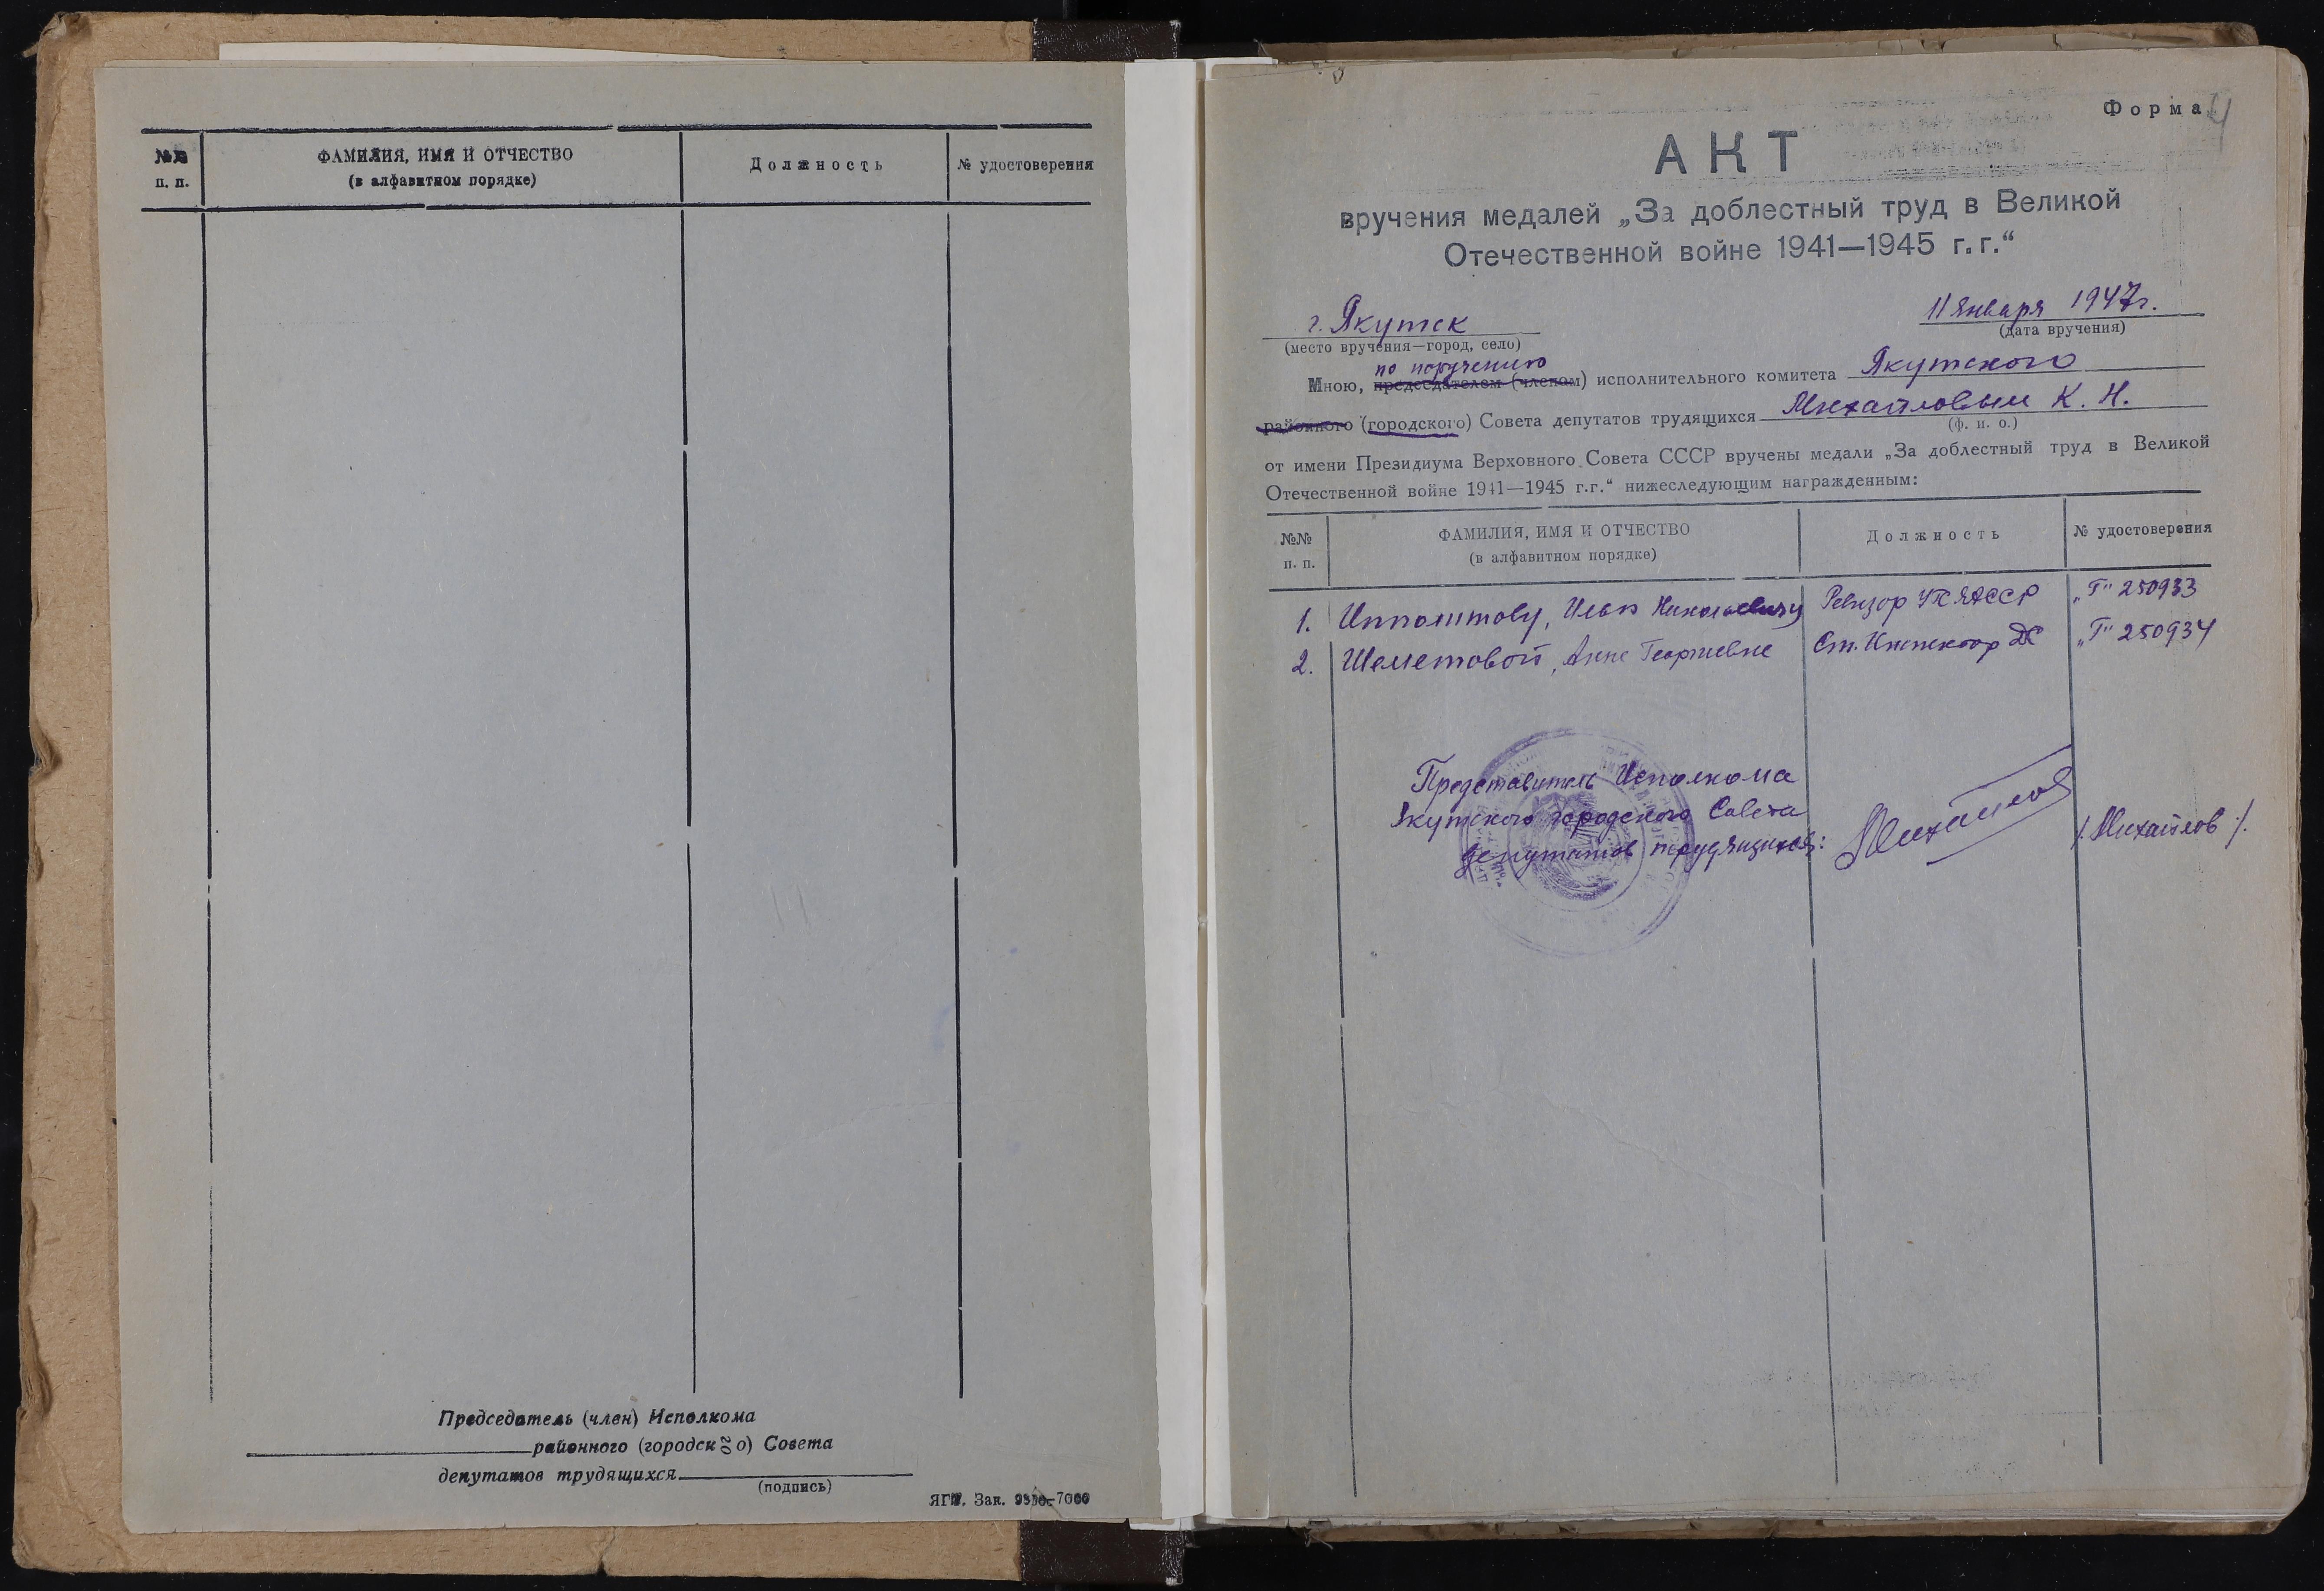 №№
п. п.
ФАМИЛИЯ, ИМЯ И ОТЧЕСТВО
(в алфавитном порядке)
Должность
№ удостоверения
Председатель (член) Исполкома
районного (городского) Совета
депутатов трудящихся
(подпись)
ЯГТ. Зак. -7000
Форма 4
АКТ
вручения медалей „За доблестный труд в Великой
Отечественной войне 1941—1945 г.г.“
г. Якутск
11 января 1947г.
(место вручения—город, село)
(дата вручения)
по поручению
Мною, председателем (членом) исполнительного комитета Якутского
районного (городского) Совета депутатов трудящихся Михайловым К. Н.
(ф. и. о.)
от имени Президиума Верховного Совета СССР вручены медали „За доблестный труд в Великой
Отечественной войне 1941—1945 г.г.“ нижеследующим награжденным:
№№
п. п.
ФАМИЛИЯ, ИМЯ И ОТЧЕСТВО
(в алфавитном порядке)
Должность
№ удостоверения
1. Ипполитову, Илье Николаевичу Ревизор УП ЯАССР „Г" 250933
2. Шеметовой, Анне Георгиевне Ст. Инспектор „Г" 250934
Представитель Исполкома
Якутского городского Совета
депутатов трудящихся: Михайлов /Михайлов/.